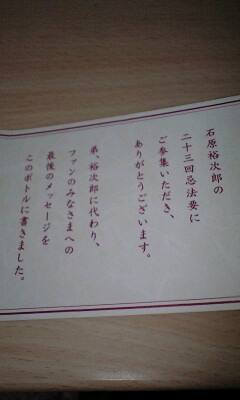 石原裕次郎の
二十三回忌法要に
ご参集いただき、
ありがとうございます。
弟、裕次郎に代わり、
ファンのみなさまへの
最後のメッセージを
このボトルに書きました。